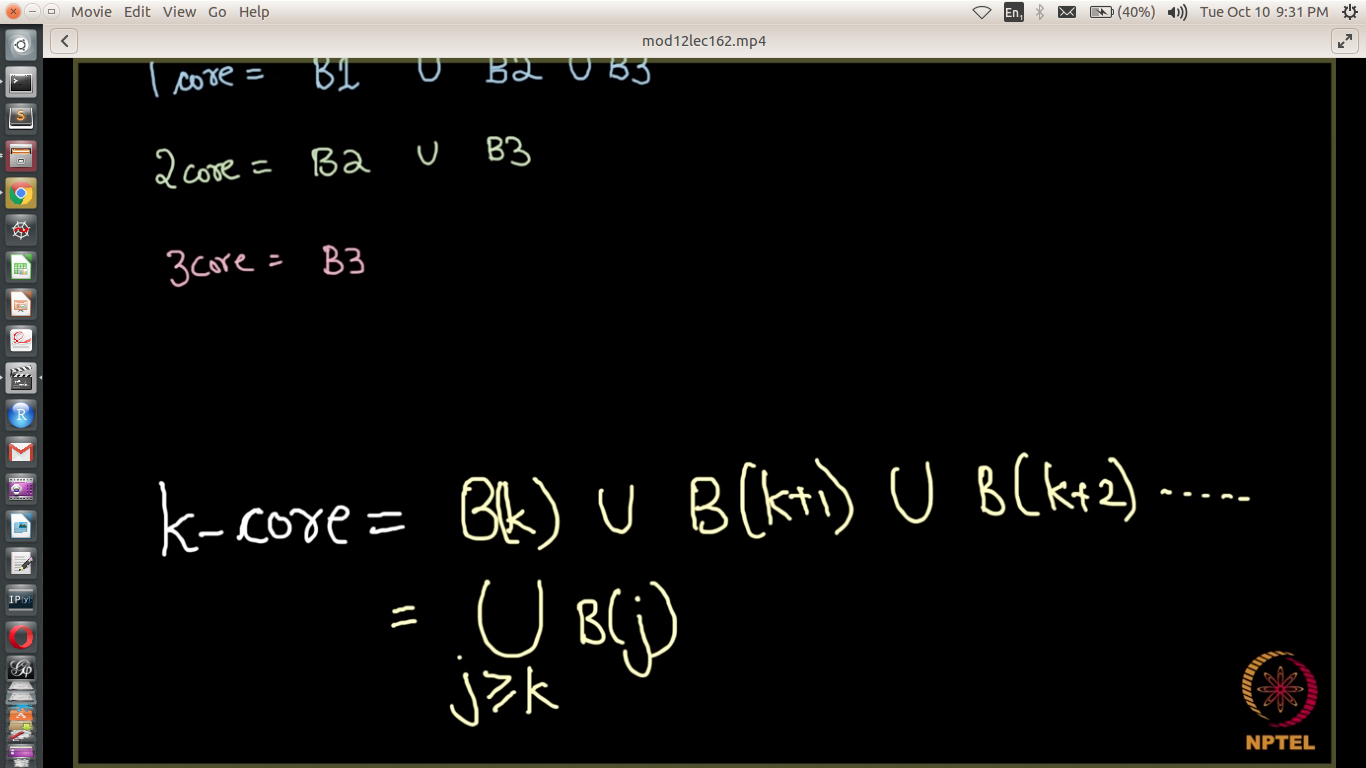 Movie Edit View Go Help En1 (40%) Tue Oct 10 9:31 PM
mod12lec162.mp4
1 core = B1 ∪ B2 ∪ B3
2 core = B2 ∪ B3
3 core = B3
k-core = B(k) ∪ B(k+1) ∪ B(k+2) -----
= ∪ B(j)
j⩾k
NPTEL